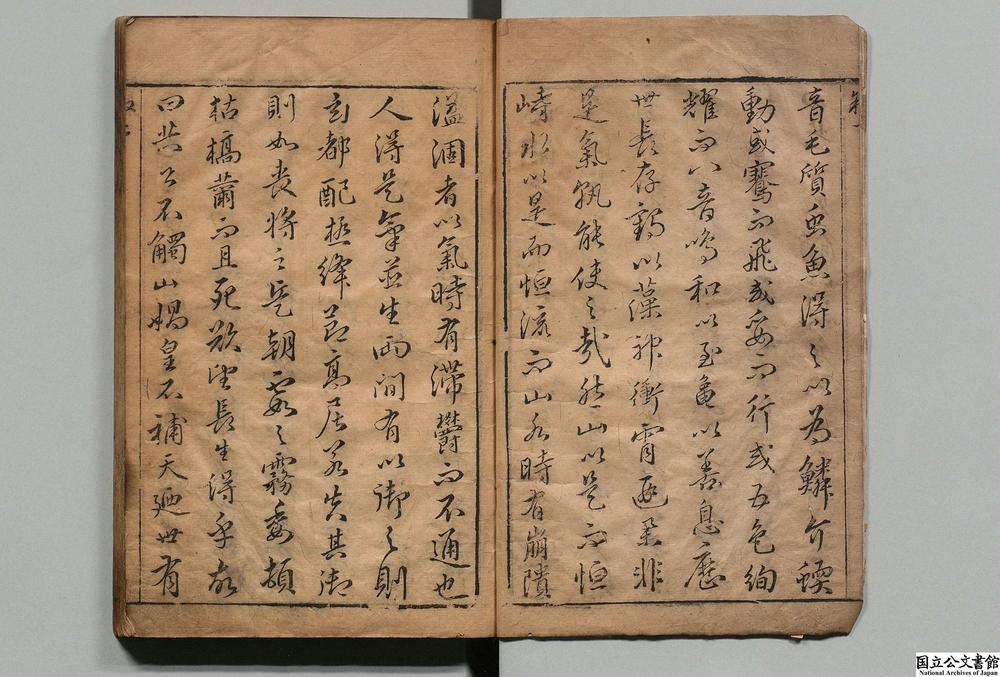 音毛質虫魚得之以為鱗介蝡
動或騫而飛或妥而行或五色絢
耀而八音鳴和以至龜以善息歷
世長存鶴以葆神衝霄遐舉非
是氣孰能使之哉然山以是而恒
峙水以是而恒流而山水時有崩潰
溢涸者以氣時有滯鬱而不通也
人得是氣並生兩間有以御之則
玄都配極絳節高居若失其御
則如喪將之兵朝霞之霧委頓
枯槁薾而且死欲望長生得乎故
曰共公不觸山媧皇不補天迺世有
国立公文書館
National Archives of Japan